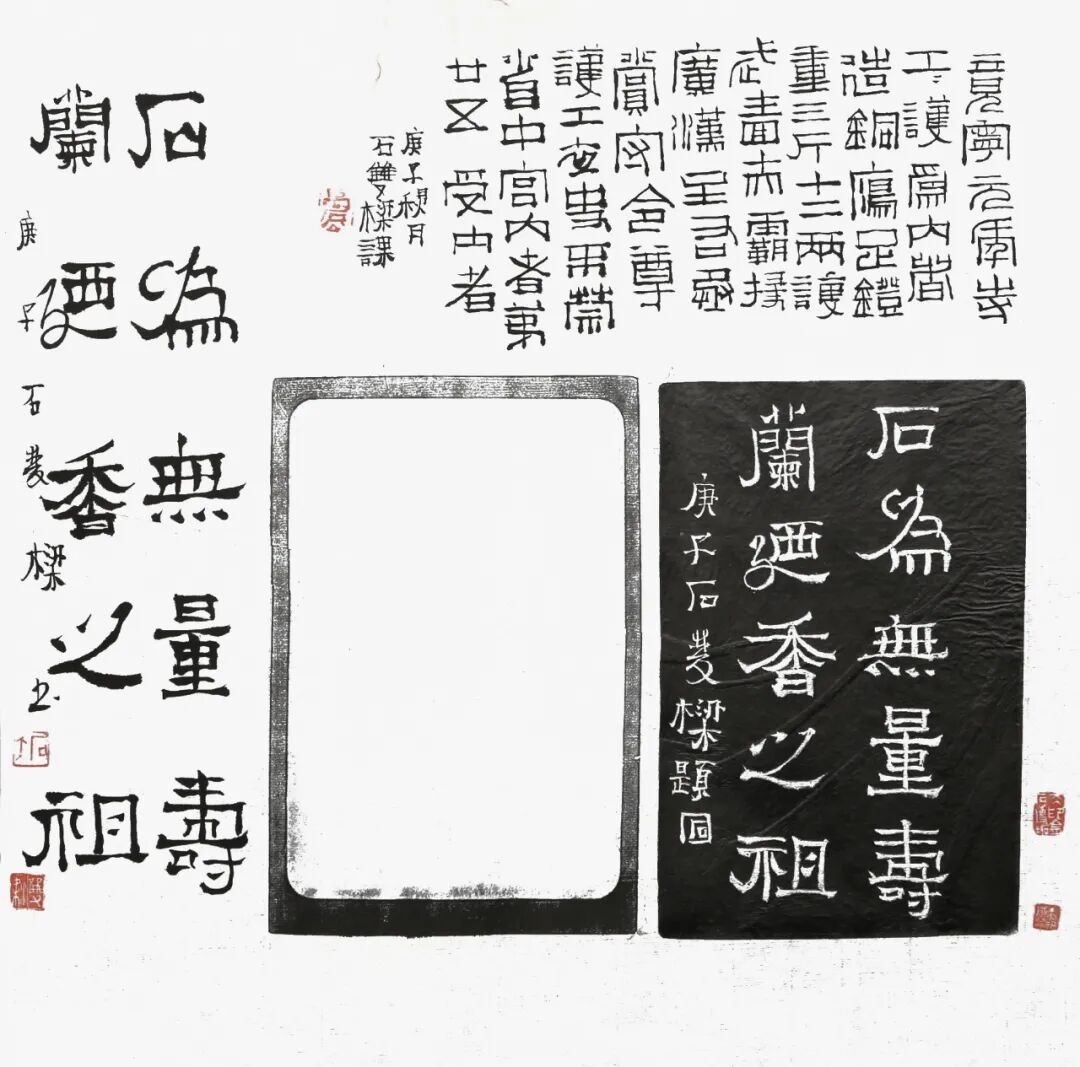 竟寧元年寺
工護爲內者
造銅鴈足鐙
重三斤十二兩護
武嗇夫霸掾
廣漢主右丞
賞守令尊
護工卒史不禁
省中宮內者弟
廿五 受內者
庚子秋月
石雙樑課
石為無量壽
蘭廼香之祖
庚子石雙樑題
石為無量壽
蘭廼香之祖
庚子石雙樑書